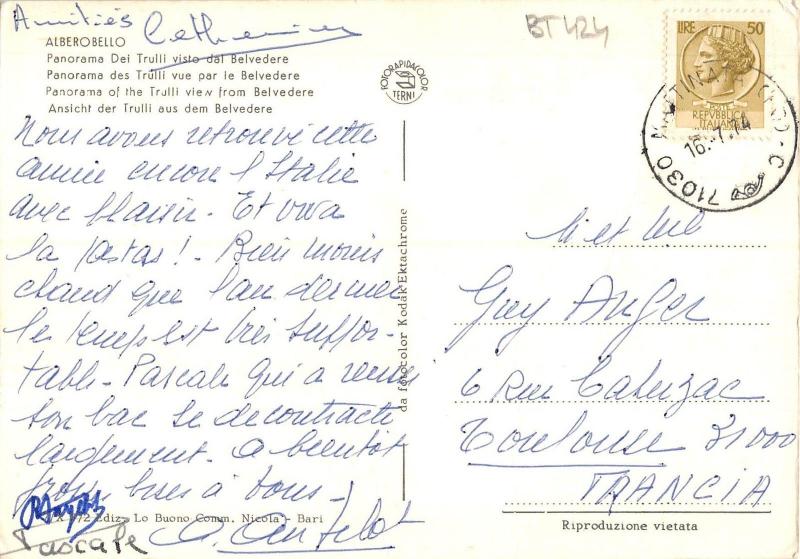 Amitiés
Catherine
BT 424
ALBEROBELLO
Panorama Dei Trulli visto dal Belvedere
Panorama des Trulli vue par le Belvedere
Panorama of the Trulli view from Belvedere
Ansicht der Trulli aus dem Belvedere
FOTORAPIDACOLOR
TERNI
LIRE 50
REPVBBLICA
ITALIANA
71030 MATTINATA
16.7.74
Nous avons retrouvé cette
année encore l'Italie
avec plaisir. Et viva
la pastas! - Bien moins
chaud que l'an dernier
le temps est très suppor-
table. Pascale qui a
son bac se décontracte
largement. A bientôt
grosses bises à tous.
Pascale
da fotocolor Kodak Ektachrome
Ediz. Lo Buono Comm. Nicola - Bari
Guy Anger
6 Rue
Toulouse 31000
FRANCIA
Riproduzione vietata